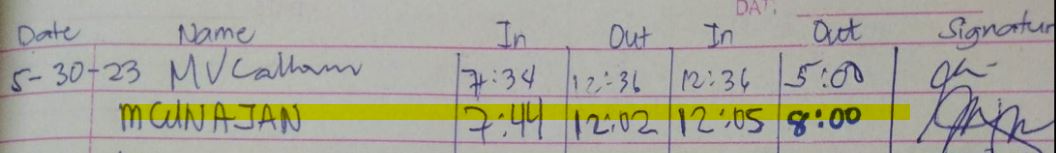 DAT
Date Name In Out In Out Signatur
5-30-23 MV 7:34 12:36 12:36 5:00
7:44 12:02 12:05 8:00